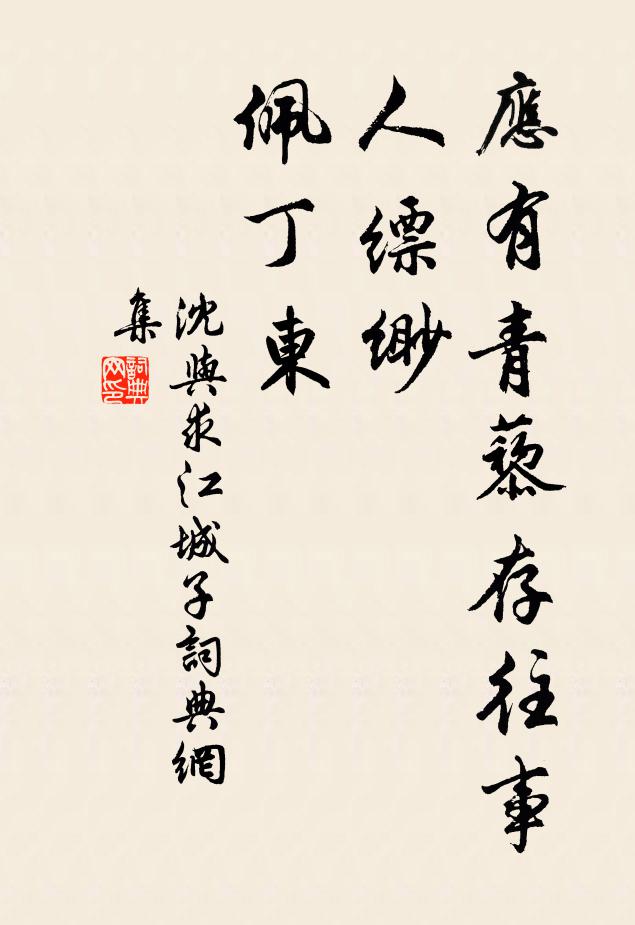 應有青藜存往事
人縹緲
佩丁東
沈與求江城子詞典網
集
詞典
网印